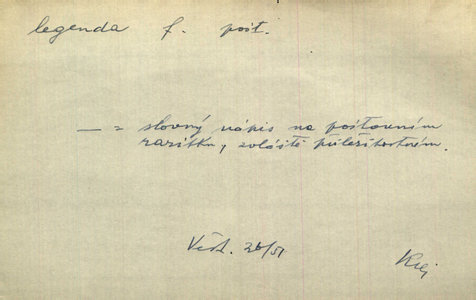 legenda f. pošt.
— = slovný nápis na poštovním
razítku, zvláště příležitostném.
26/51